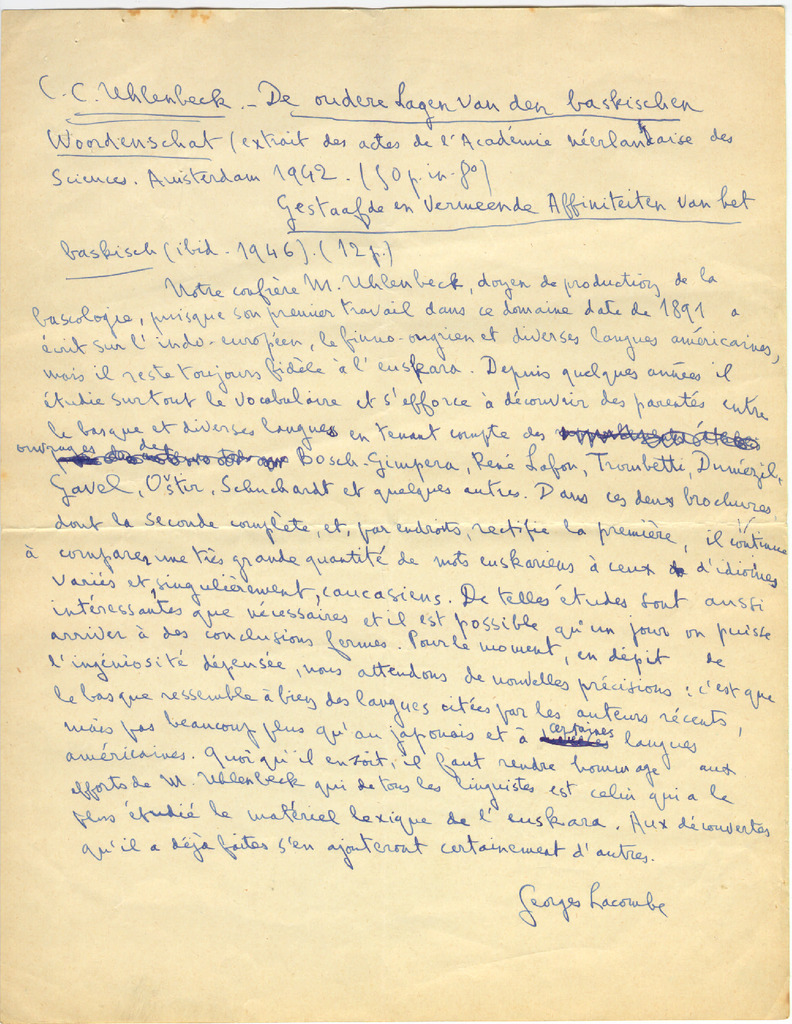 C. C. Uhlenbeck. - De oudere lagen van den baskischen
Woordenschat (extrait des actes de l'Académie néerlandaise des
Sciences. Amsterdam 1942. (50 p. in-8°)
Gestaafde en Vermeende Affiniteiten van het
baskisch (ibid. 1946). (12 p.)
Notre confrère M. Uhlenbeck, doyen de production de la
bascologie, puisque son premier travail dans ce domaine date de 1891 a
écrit sur l'indo-européen, le finno-ougrien et diverses langues américaines,
mais il reste toujours fidèle à l'euskara. Depuis quelques années il
étudie surtout le vocabulaire et s'efforce à découvrir des parentés entre
le basque et diverses langues en tenant compte des
ouvrages de Bosch-Gimpera, René Lafon, Trombetti, Dumézil,
Gavel, Oštir, Schuchardt et quelques autres. Dans ces deux brochures,
dont la seconde complète, et, par endroits, rectifie la première, il continue
à comparer une très grande quantité de mots euskariens à ceux d'idiomes
variés et, singulièrement, caucasiens. De telles études sont aussi
intéressantes que nécessaires et il est possible qu'un jour on puisse
arriver à des conclusions fermes. Pour le moment, en dépit de
l'ingéniosité dépensée, nous attendons de nouvelles précisions : c'est que
le basque ressemble à bien des langues citées par les auteurs récents,
mais pas beaucoup plus qu'au japonais et à certaines langues
américaines. Quoiqu'il en soit, il faut rendre hommage aux
efforts de M. Uhlenbeck qui de tous les linguistes est celui qui a le
plus étudié le matériel lexique de l'euskara. Aux découvertes
qu'il a déjà faites s'en ajouteront certainement d'autres.
Georges Lacombe